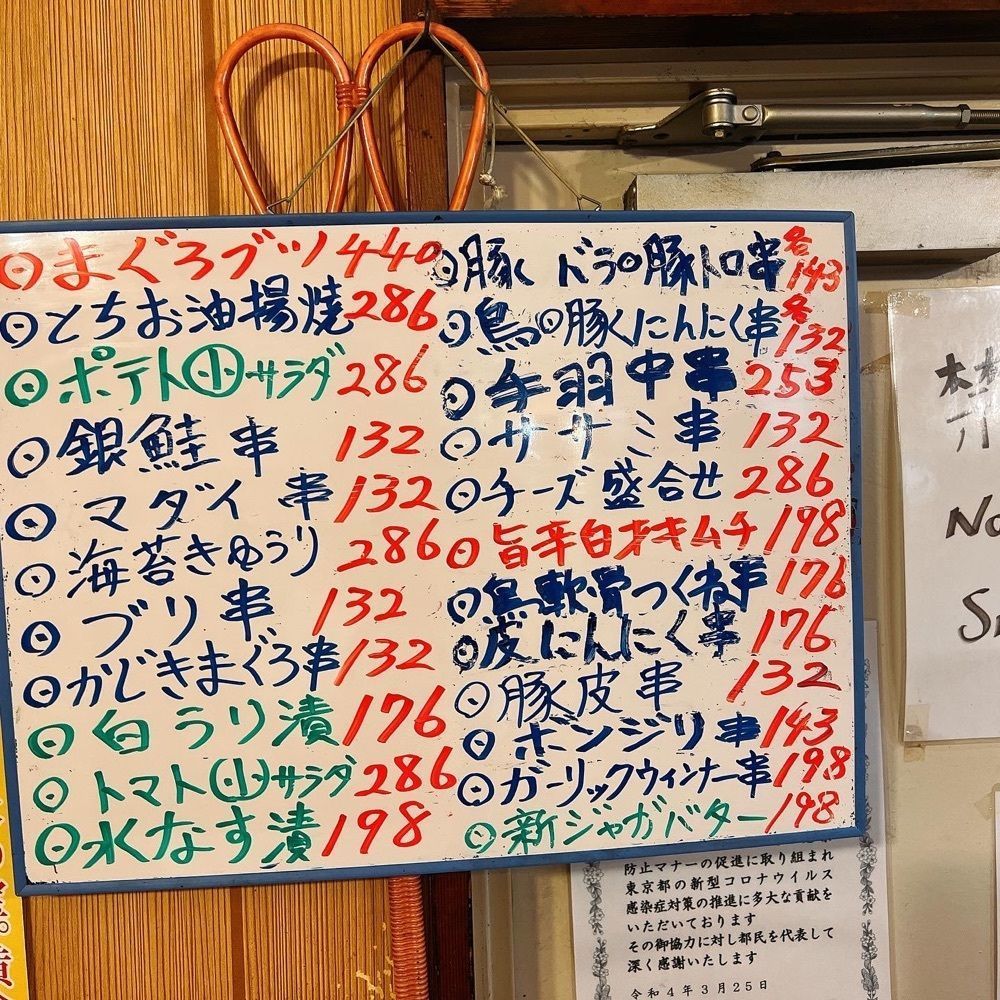 まぐろブツ 440
とちお油揚焼 286
ポテト小サラダ 286
銀鮭串 132
マダイ串 132
海苔きゅうり 286
ブリ串 132
かじきまぐろ串 132
白うり漬 176
トマト小サラダ 286
水なす漬 198
豚く ドラ 豚トロ串 各143
鳥 豚くにんにく串 各132
手羽中串 253
ササミ串 132
チーズ盛合せ 286
旨辛白才キムチ 198
鳥軟骨つくね串 176
皮にんにく串 176
豚皮串 132
ボンジリ串 143
ガーリックウィンナー串 198
新ジャガバター 198
禁
No
防止マナーの促進に取り組まれ
東京都の新型コロナウイルス
感染症対策の推進に多大な貢献を
いただいております
その御協力に対し都民を代表して
深く感謝いたします
令和4年3月25日